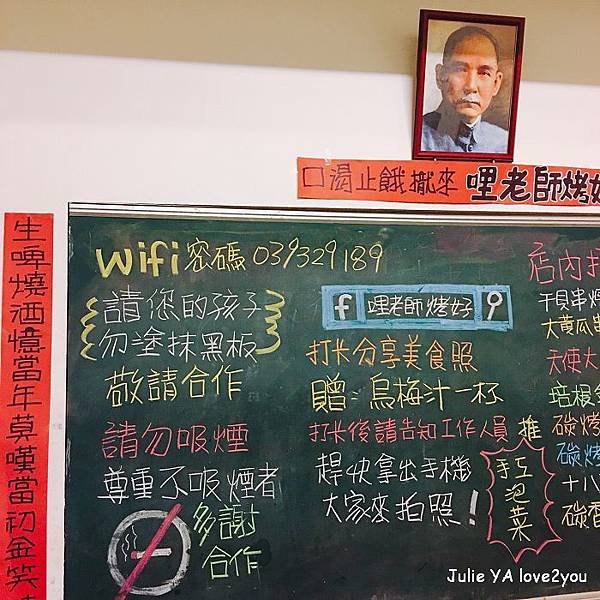 口渴止餓撇來 哩老師烤好
生啤燒酒憶當年莫嘆當初金笑
wifi 密碼 039329189
請您的孩子
勿塗抹黑板
敬請合作
請勿吸煙
尊重不吸煙者
多謝
合作
f 哩老師烤好
打卡分享美食照
贈：烏梅汁一杯
打卡後請告知工作人員
趕快拿出手機
大家來拍照！
推
手工泡菜
店內
干貝串燒
大黃瓜串
天使大
培根金
碳烤
碳烤
十八
碳香
Julie YA love2you